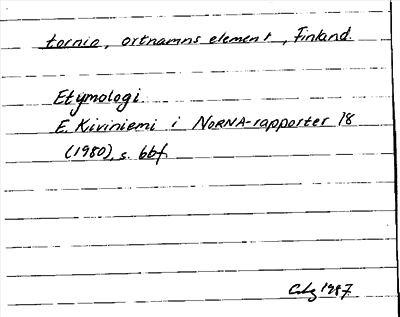 tornio, ortnamns element, Finland.
Etymologi
E. Kiviniemi i NORNA-rapporter 18
(1980), s. 66f
1987